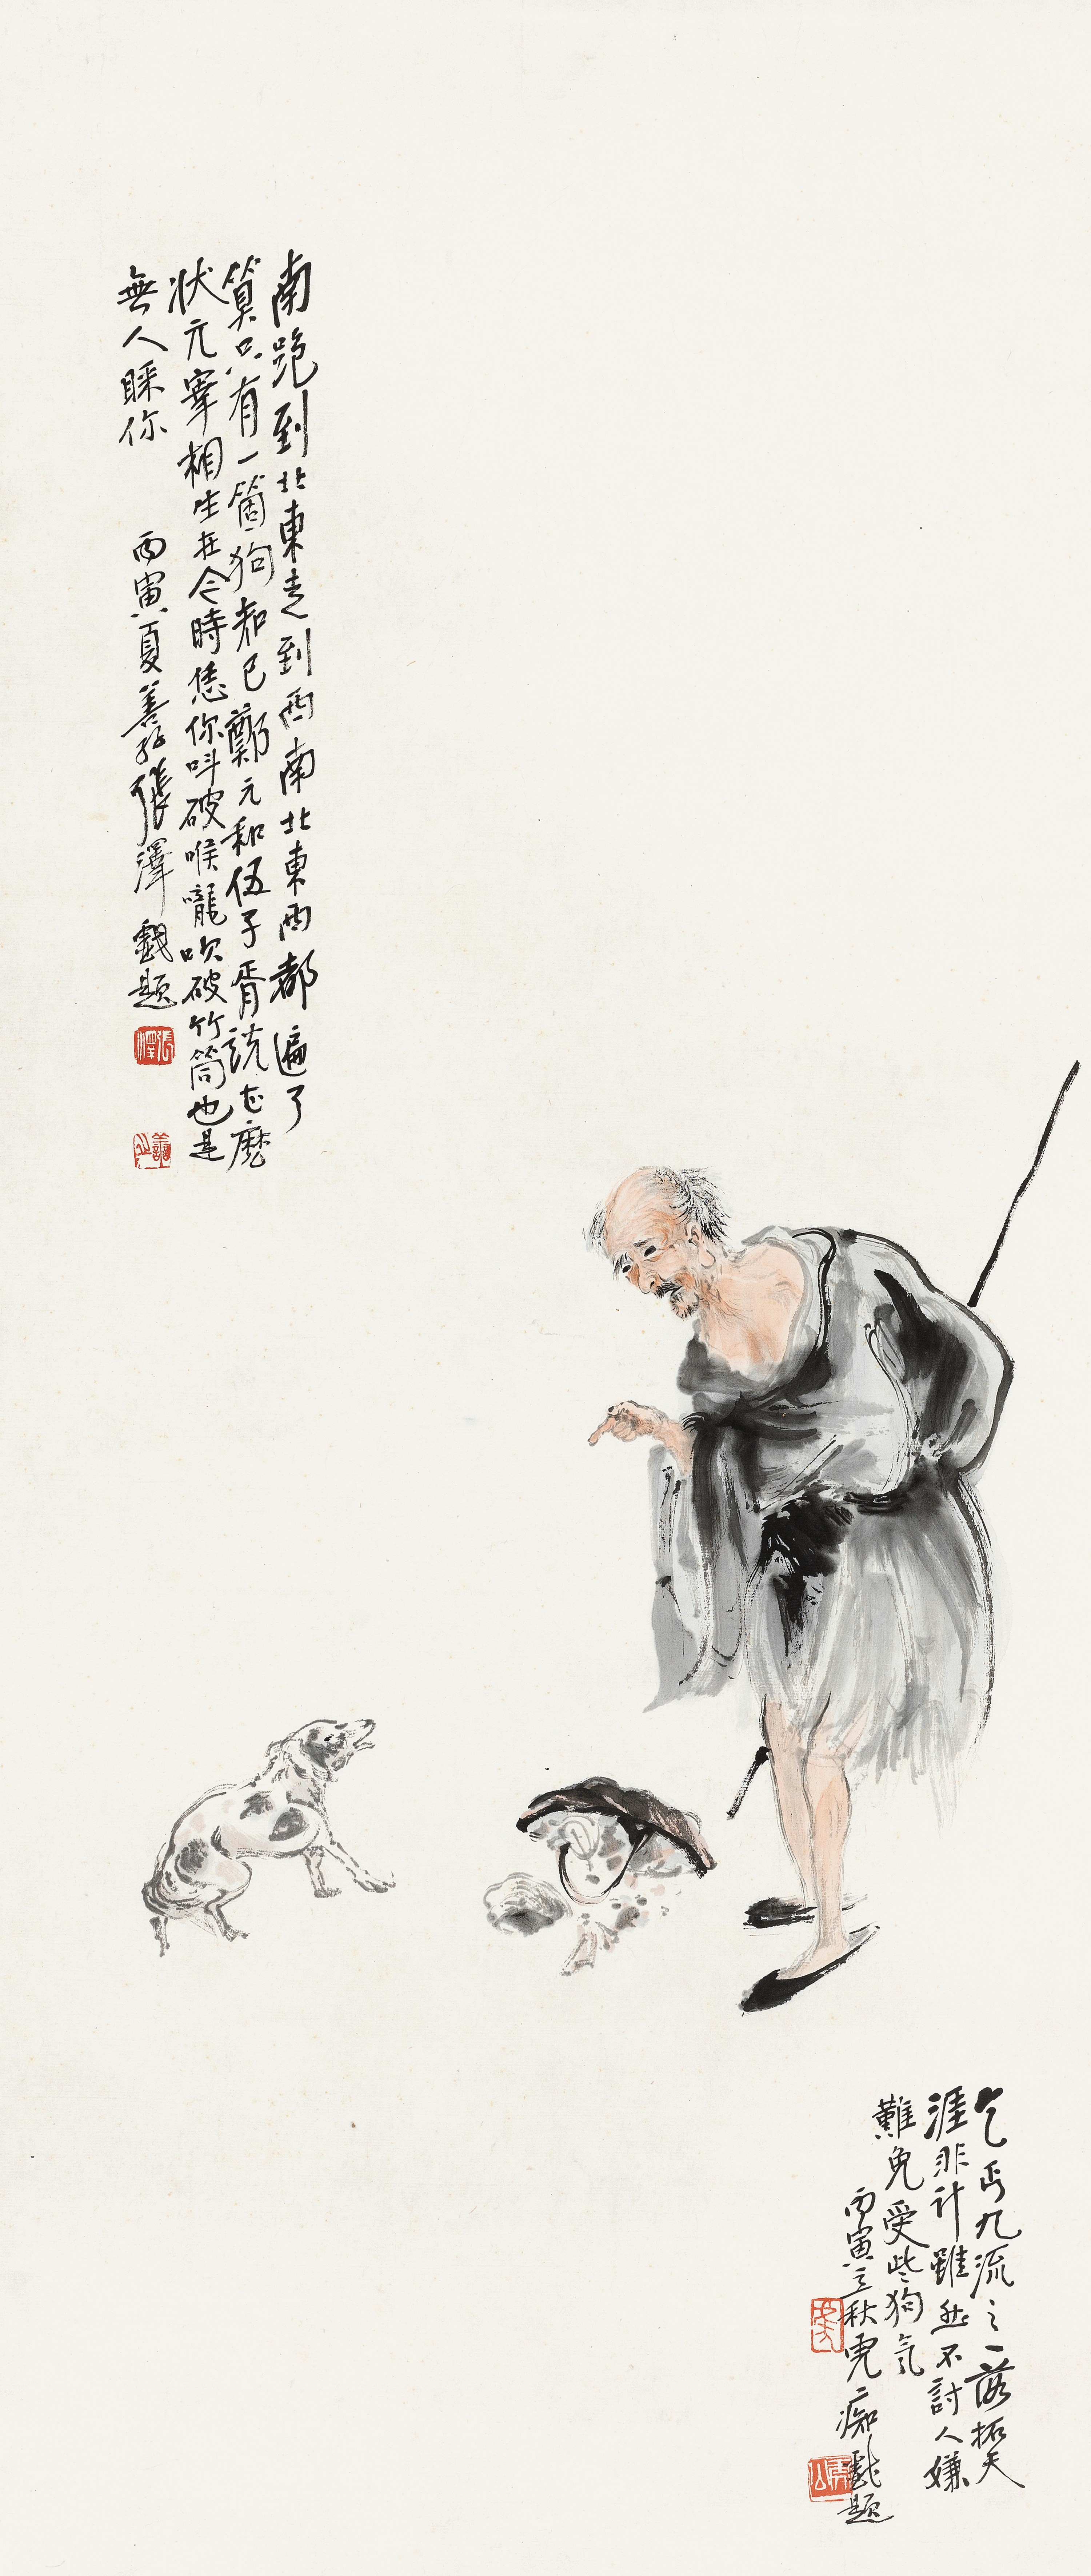 南跪到北東走到西南北東西都遍了
算只有一箇狗知己鄭元和伍子胥說甚麼
狀元宰相生在今時恁你叫破喉嚨吹破竹筒也是
無人睬你
丙寅夏善孖張澤戲題
張澤
乞丐九流之一落拓天
涯非計雖然不討人嫌
難免受些狗氣
丙寅立秋虎癡戲題
虎公